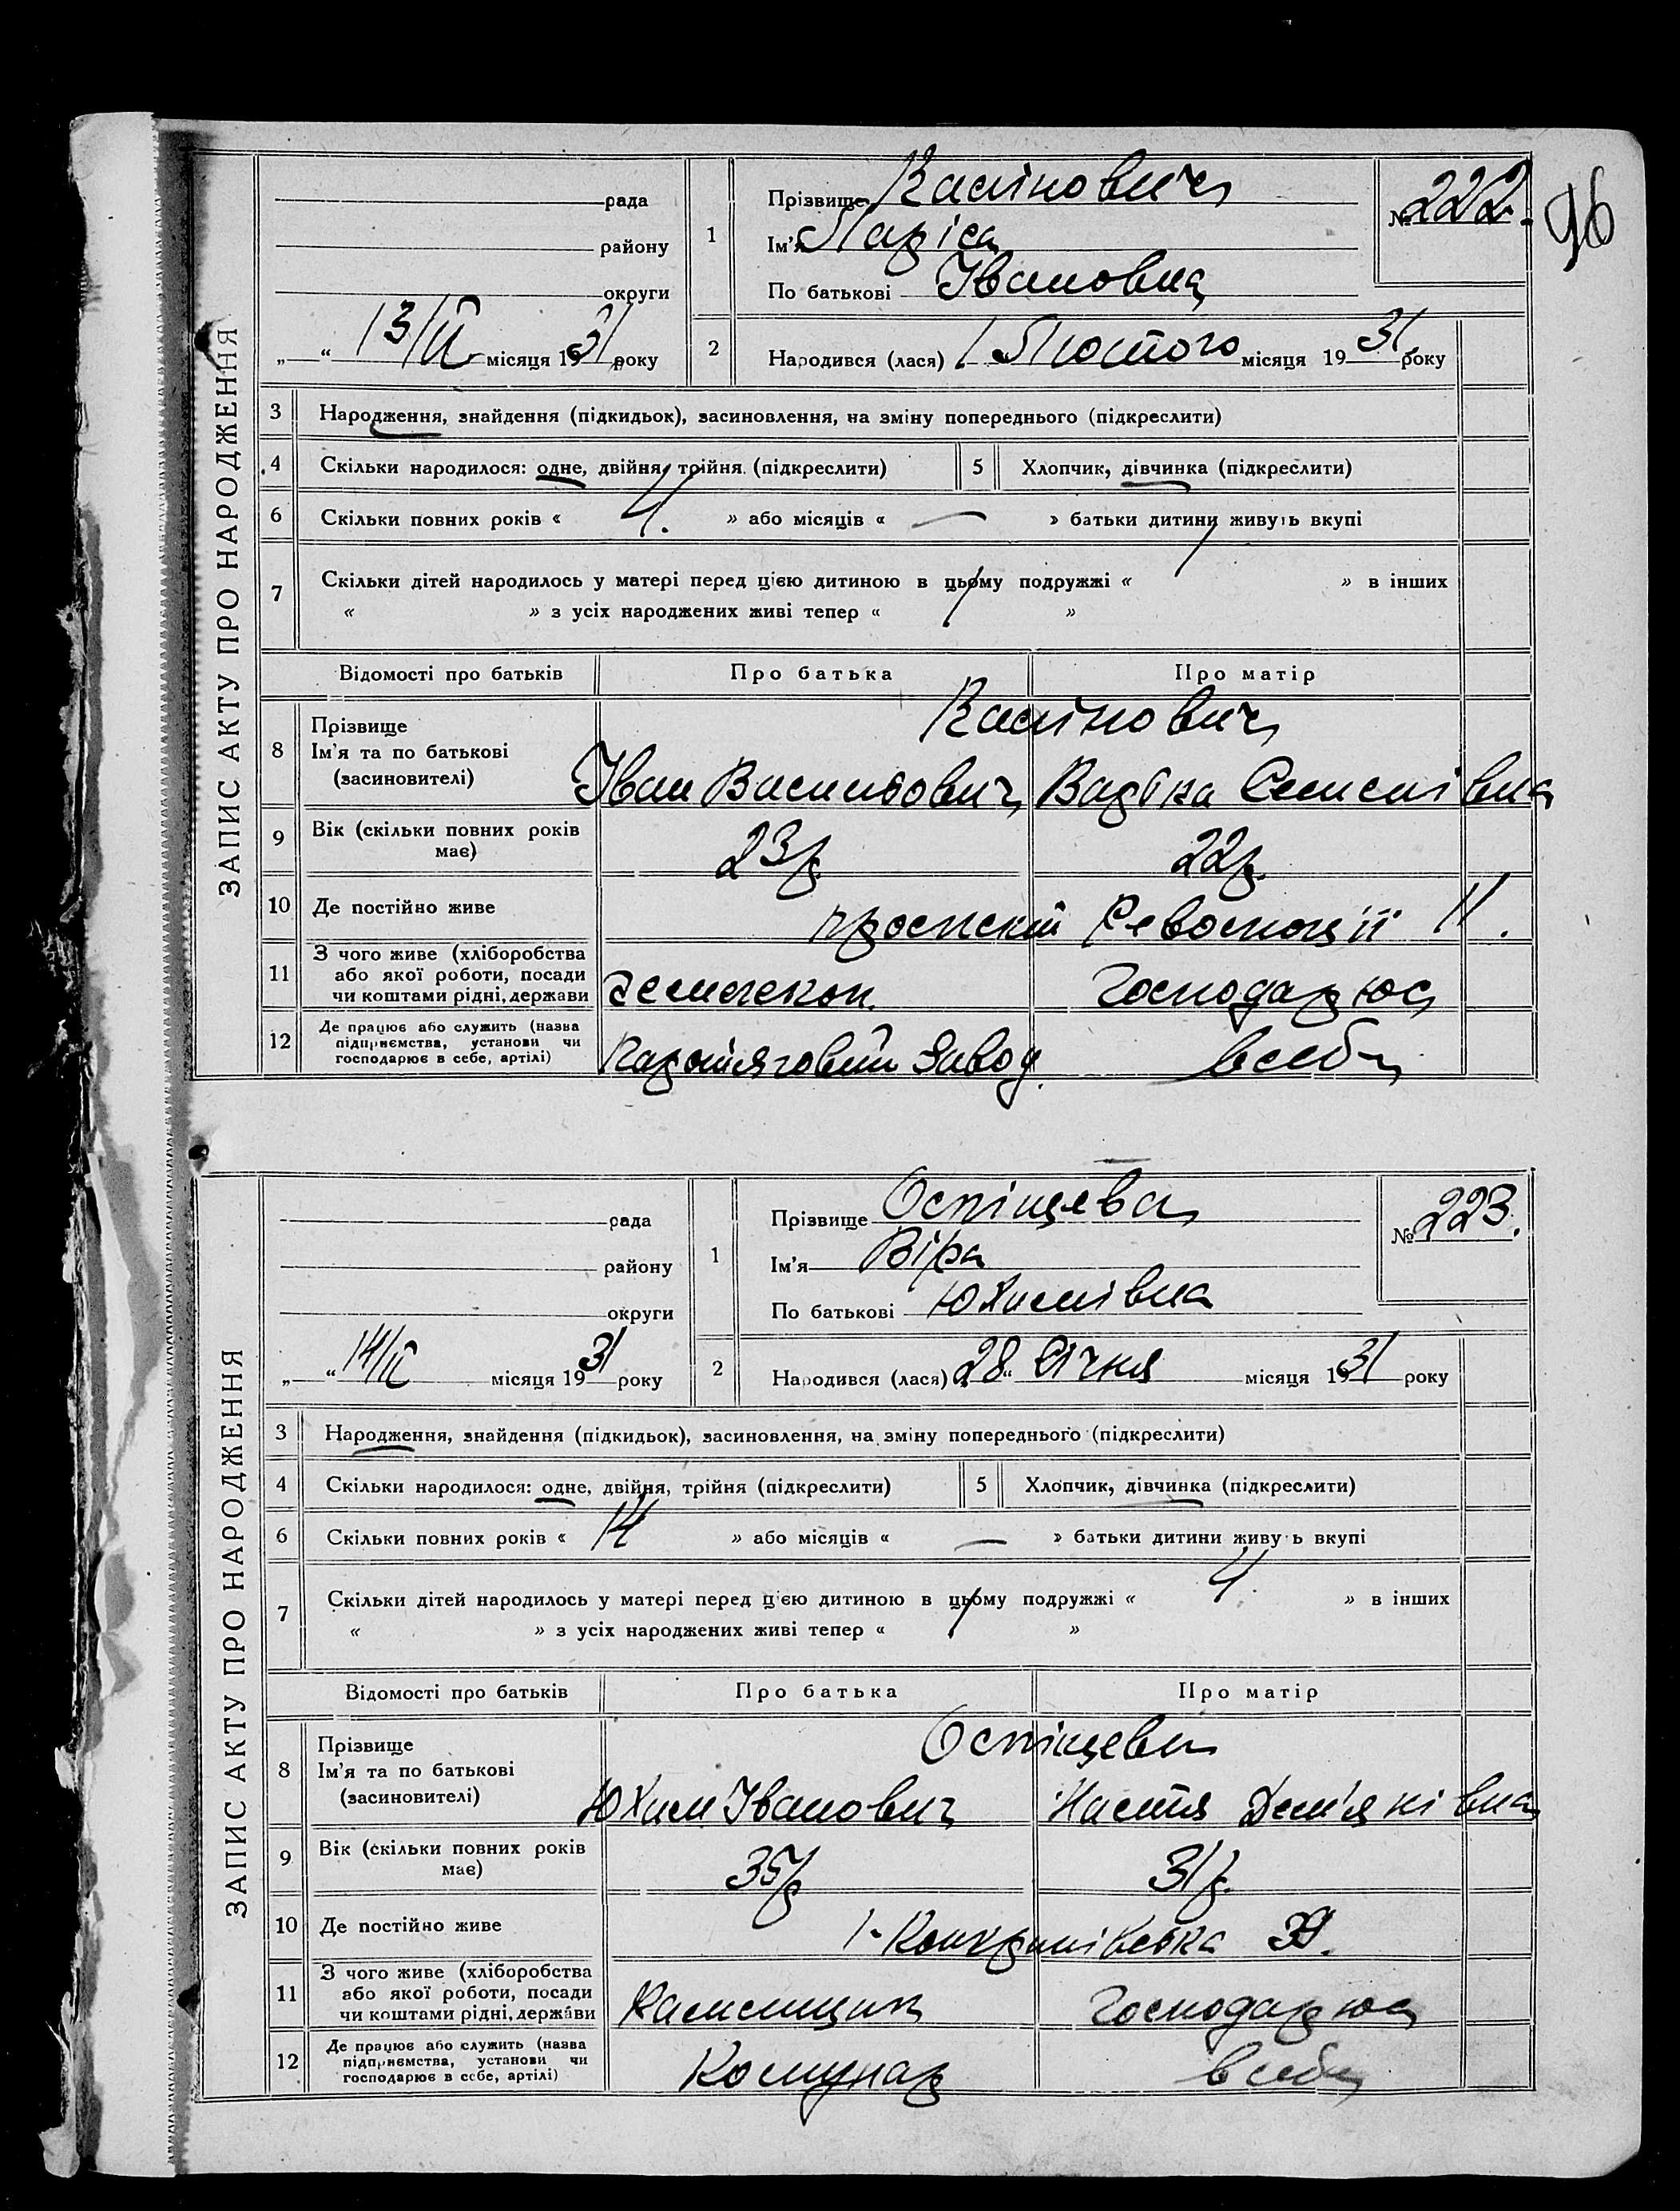 96
ЗАПИС АКТУ ПРО НАРОДЖЕННЯ
рада
району
округи
„ “ 13/II місяця 1931 року
1
Прізвище Калінович
Ім'я Ларіса
По батькові Івановна
№ 222.
2
Народився (лася) 1 Лютого місяця 1931 року
3 Народження, знайдення (підкидьок), засиновлення, на зміну попереднього (підкреслити)
4 Скільки народилося: одне, двійня, трійня (підкреслити) 5 Хлопчик, дівчинка (підкреслити)
6 Скільки повних років « 4. » або місяців « — » батьки дитини живуть вкупі
7 Скільки дітей народилось у матері перед цією дитиною в цьому подружжі « 1 » в інших
« » з усіх народжених живі тепер « 1 »
Відомості про батьків Про батька Про матір
8 Прізвище
Ім'я та по батькові
(засиновителі)
Калінович
Іван Васильович
9 Вік (скільки повних років має) 23р. 22р.
10 Де постійно живе Революції 11.
11 З чого живе (хліборобства
або якої роботи, посади
чи коштами рідні, держави
Господарює
12 Де працює або служить (назва
підприємства, установи чи
господарює в себе, артілі)
Паротяговий Завод. в себе
ЗАПИС АКТУ ПРО НАРОДЖЕННЯ
рада
району
округи
„ “ 14/II місяця 1931 року
1
Прізвище Оспіщева
Ім'я Віра
По батькові Юхимівна
№ 223.
2
Народився (лася) „28“ Січня місяця 1931 року
3 Народження, знайдення (підкидьок), засиновлення, на зміну попереднього (підкреслити)
4 Скільки народилося: одне, двійня, трійня (підкреслити) 5 Хлопчик, дівчинка (підкреслити)
6 Скільки повних років « 14 » або місяців « — » батьки дитини живуть вкупі
7 Скільки дітей народилось у матері перед цією дитиною в цьому подружжі « 4. » в інших
« » з усіх народжених живі тепер « 1 »
Відомості про батьків Про батька Про матір
8 Прізвище
Ім'я та по батькові
(засиновителі)
Оспіщеви
Юхим Іванович Настя Дем'янівна
9 Вік (скільки повних років має) 35р 31р.
10 Де постійно живе
11 З чого живе (хліборобства
або якої роботи, посади
чи коштами рідні, держави
Господарює
12 Де працює або служить (назва
підприємства, установи чи
господарює в себе, артілі)
Комунар в себе